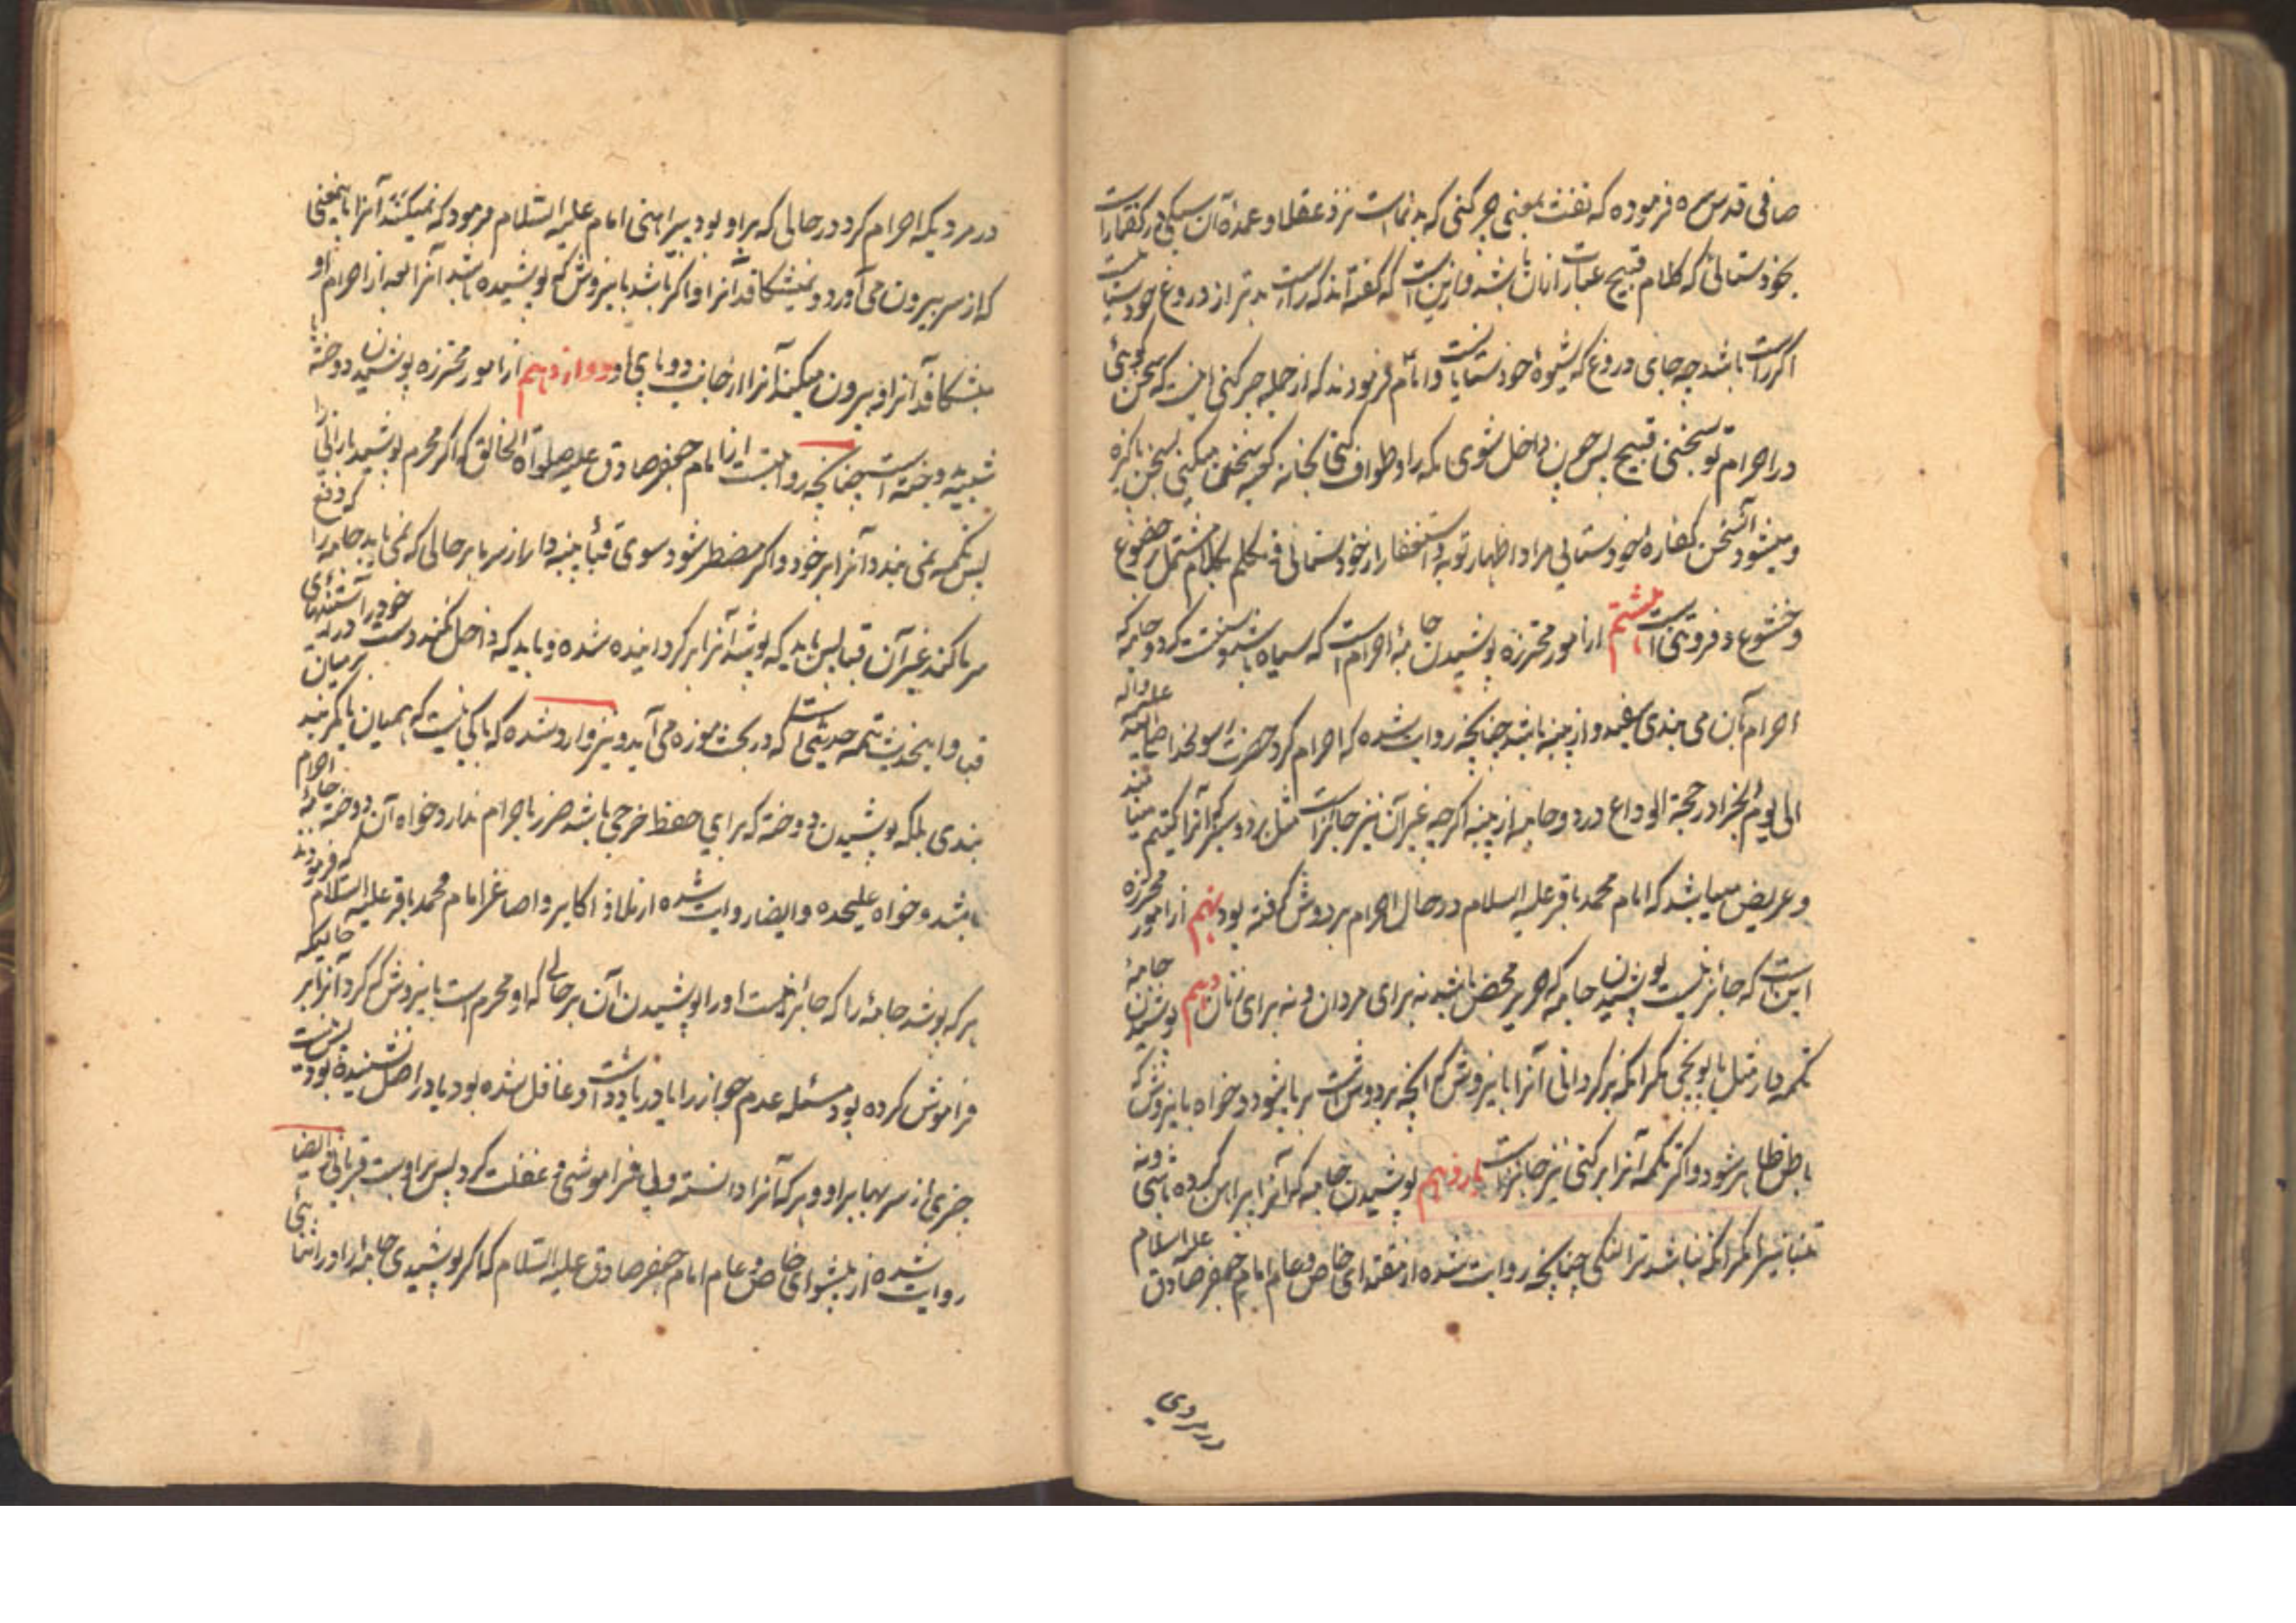 صافی قدس سره فرموده که تفث بمعنی چرکنی که بدنماست نزد عقلا و عمدۀ آن سبکی در گفتار است
بخودستائی که کلام قبیح عبارت از آن باشد و ازین است که گفته‌اند که راست بدتر از دروغ خودستائیست
اگر راست باشد چه جای دروغ که بشیوۀ خودستایانست و امام فرمودند که از جمله چرکنی اینست که سخن گوئی
در احرام تو بسخنی قبیح پس چون داخل شوی مکه را و طواف کنی بخانه کعبه سخن میکنی بسخن پاکیزه
و میشود آن سخن کفاره خودستایی مراد اظهار توبه و استغفار از خودستائی و تکلم بکلام مشتمل بر خضوع
و خشوع و فروتنی است هشتم از امور محترزه پوشیدن جامۀ احرام است که سیاه باشد و سنت کرده جامه که
احرام بآن می بندی سفید و از پنبه باشد چنانچه روایت شده که احرام کرد حضرت رسولخدا صلی الله علیه و آله
الی یوم النحر در حجة الوداع در دو جامه از پنبه اگرچه غیر آن نیز جائز است مثل برد و سبز که آنرا
و عریض میباشد که امام محمد باقر علیه السلام در حال احرام بر دوش گرفته بود نهم از امور محترزه
این است که جائز نیست پوشیدن جامه که حریر محض باشد نه برای مردان و نه برای زنان دهم پوشیدن جامۀ
تکمه دار مثل بالاپوچی مگر آنکه برگردانی آنرا باینروش که آنچه بر دوش است بر پا شود و خواه باینروش که
باطن ظاهر شود و اگر تکمه آنرا برکنی نیز جائز است یازدهم پوشیدن جامه که آنرا پیراهن کرده باشی و نه
تنبانیرا مگر آنکه نباشد ترا لنگی چنانچه روایت شده از مقتدای خاص و عام امام جعفر صادق علیه السلام
در مردی
در مردیکه احرام کرد در حالی که بر او بود پیراهنی امام علیه السلام فرمود که نمیکند آنرا باینمعنی
که از سر بیرون می آورد و نمیشکافد آنرا و اگر باشد باینروش که پوشیده باشد آنرا بعد از احرام او
میشکافد آنرا و بیرون میکند آنرا از جانب دو پای او دوازدهم از امور محترزه پوشیدن دوخته یا
شبیه دوخته است چنانچه روایتست از امام جعفر صادق علیه صلواة الخالق که اگر محرم پوشید بارانی را
پس تکمه نمی بندد آنرا بر خود و اگر مضطر شود سوی قبائ پنبه دار از سرما بر حالی که نمی یابد جامه را که دفع
سرما کند غیر آن قبا پس باید که بپوشد آنرا برگردانیده شده و باید که داخل نکند دست خود را در آستینهای
قبا و اینحدیث تتمه حدیثی است که در بحث موزه می آید و نیز وارد شده که باکی نیست که همیان یا کمربند بر میان
بندی بلکه پوشیدن دوخته که برای حفظ خرجی باشد ضرر باحرام ندارد خواه آن دوخته جامۀ احرام
باشد و خواه علیحده و ایضا روایت شده از ملاذ اکابر و اصاغر امام محمد باقر علیه السلام که فرمودند
هر که بپوشد جامۀ را که جائز نیست او را پوشیدن آن بر حالی که او محرم است باینروش که کرد آنرا بر حالیکه
فراموش کرده بود مسئله عدم جواز را یا در یاد داشت و غافل شده بود یا در اصل نشنیده بود نیست
چیزی از سر بها بر او و هر که آنرا دانسته و بی فراموشی و غفلت کرد پس بر اوست قربانی و ایضا
روایت شده از پیشوای خاص و عام امام جعفر صادق علیه السلام که اگر پوشیدی جامه را در اثنای